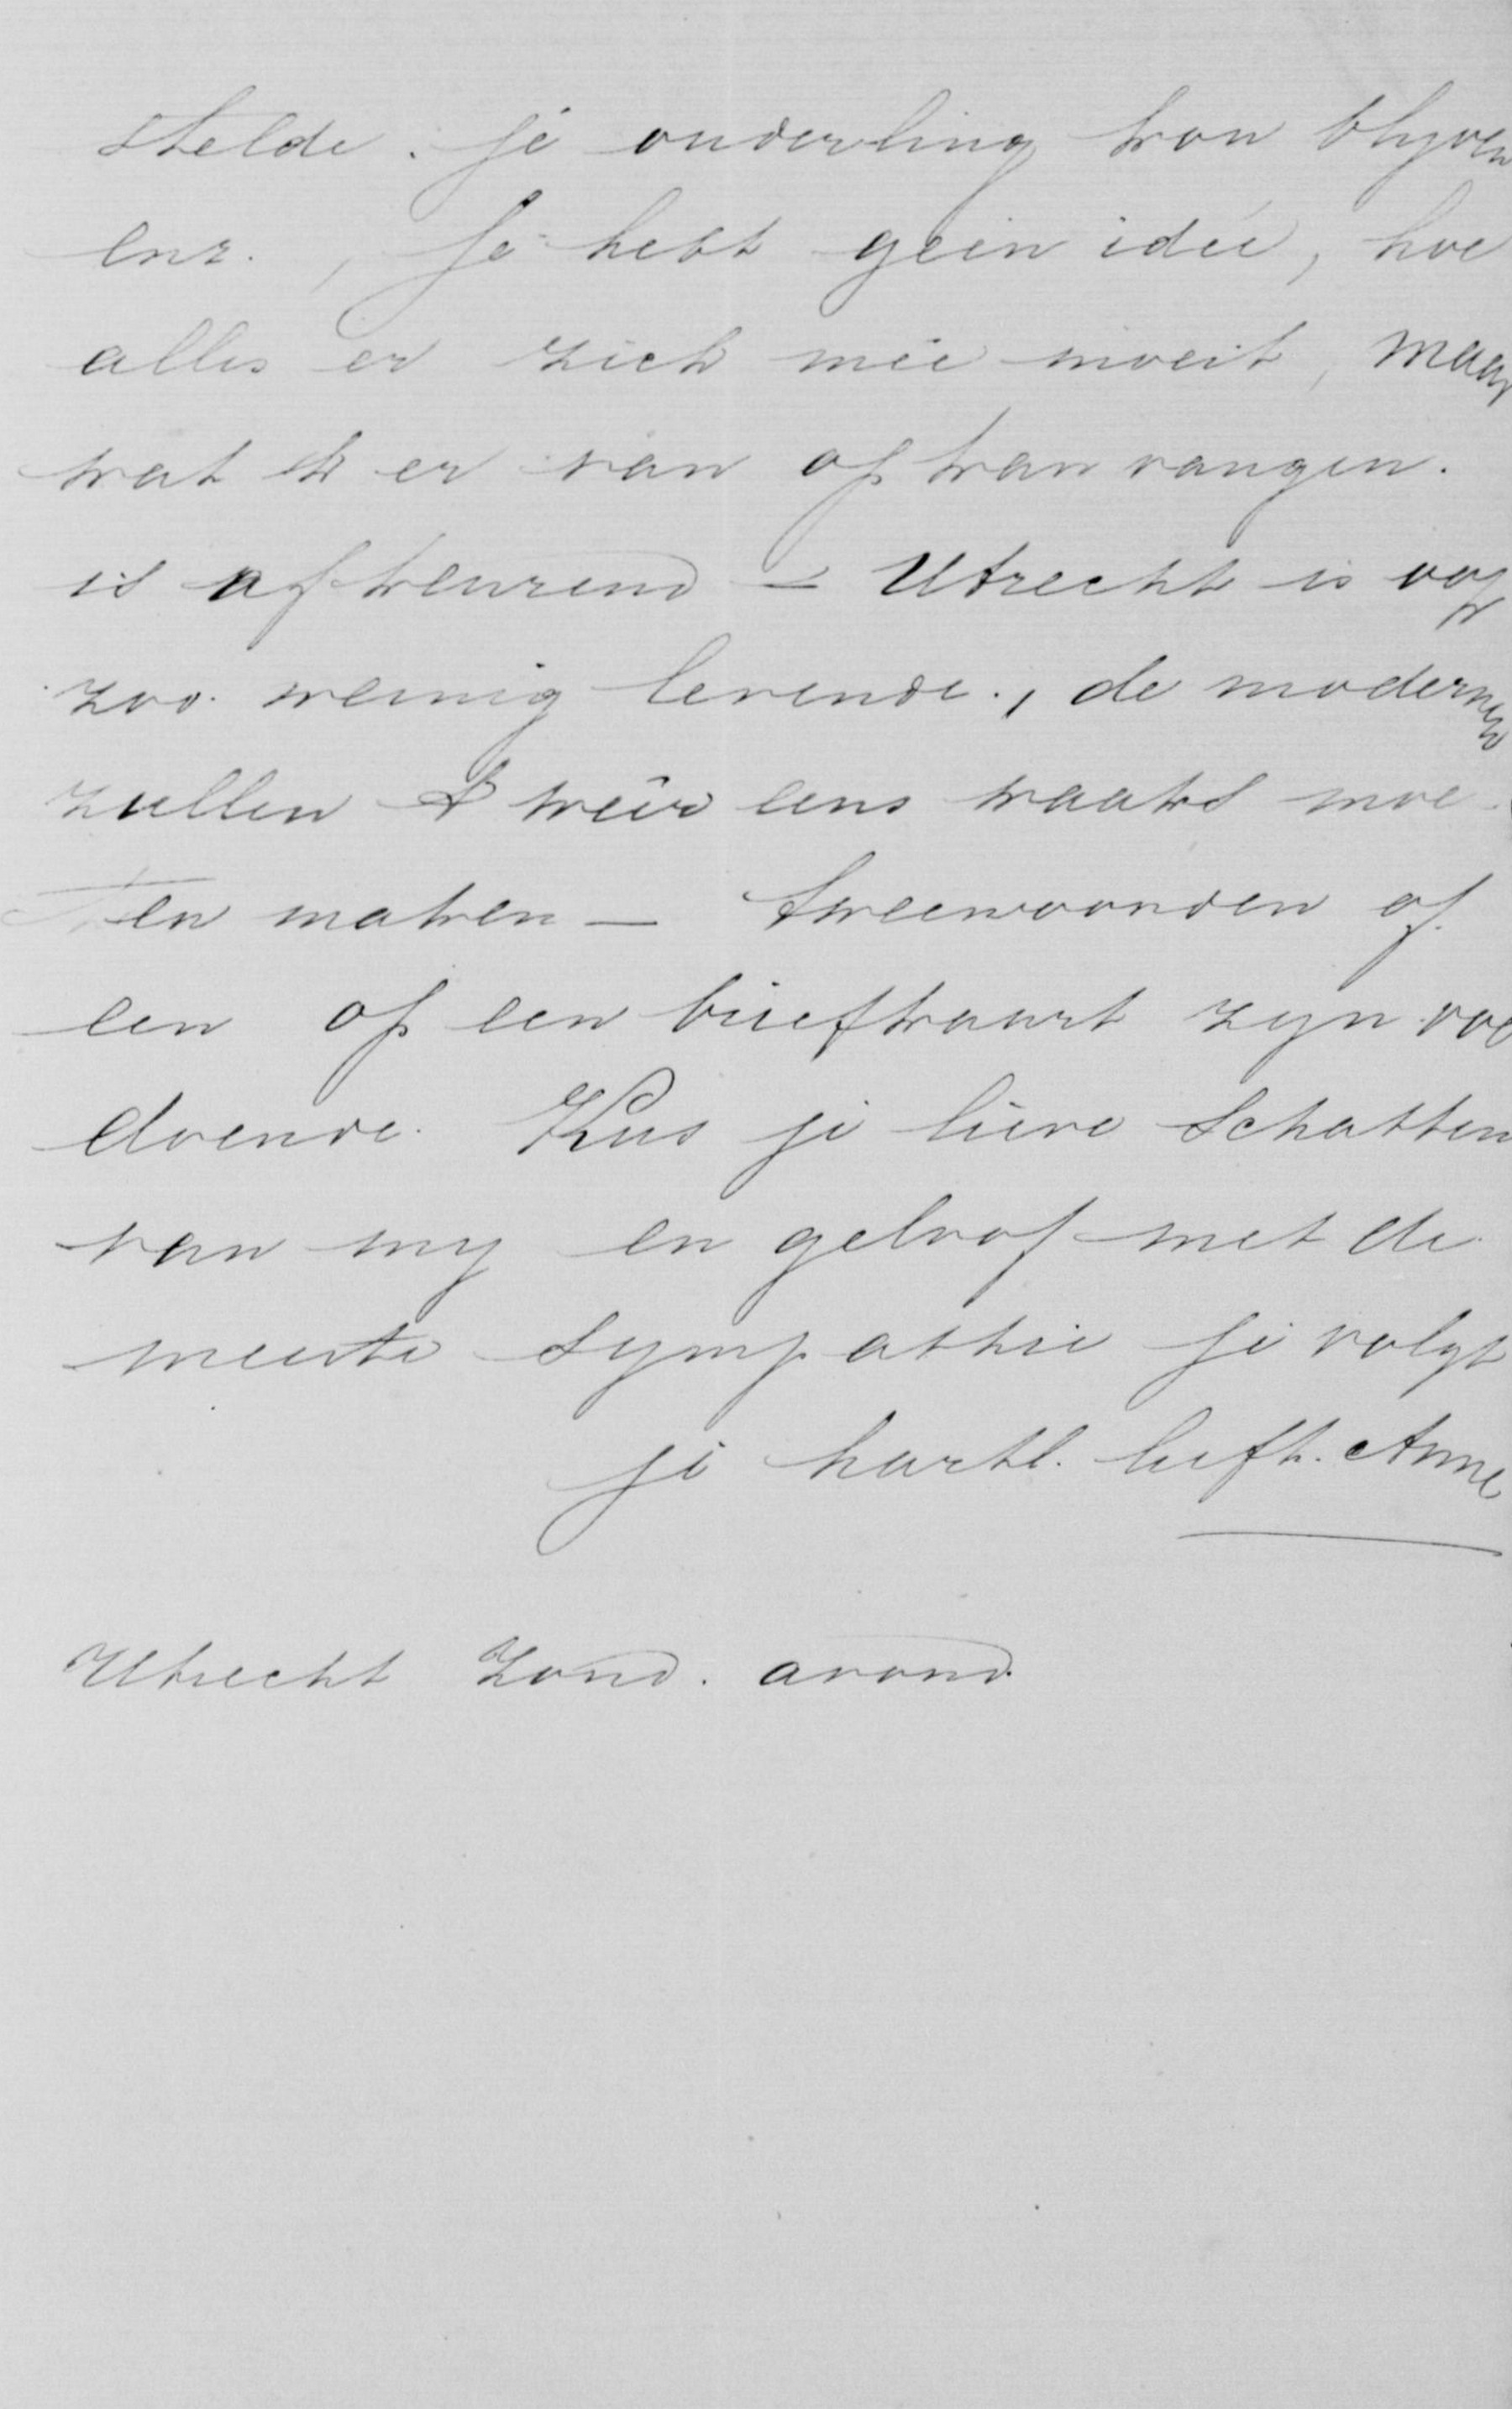 stelde. je onderling kon blyven
enz., Je hebt geen idée, hoe
alles er zich mée moeit, maar
wat ik er van op kan vangen.
is afkeurend – Utrecht is ook
zoo. weinig levende., de modernen
zullen 't wéér eens kaaks moe-
ten maken – twee woorden op
een of een briefkaart zyn vol
doende. Kus je lieve schatten
van my en geloof met de
meeste sympathie je volgt
je hartl. liefh. Anne
Utrecht Zond. avond.